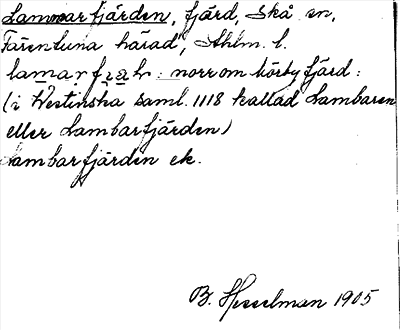 Lammarfjärden, fjärd, Skå sn,
Färentuna härad, Shlm. l.
: norr om Körby fjärd:
(i Westinska saml. 1118 kallad Lambaren
eller Lambarfjärden)
Lambarfjärden ek.
B. Hesselman 1905